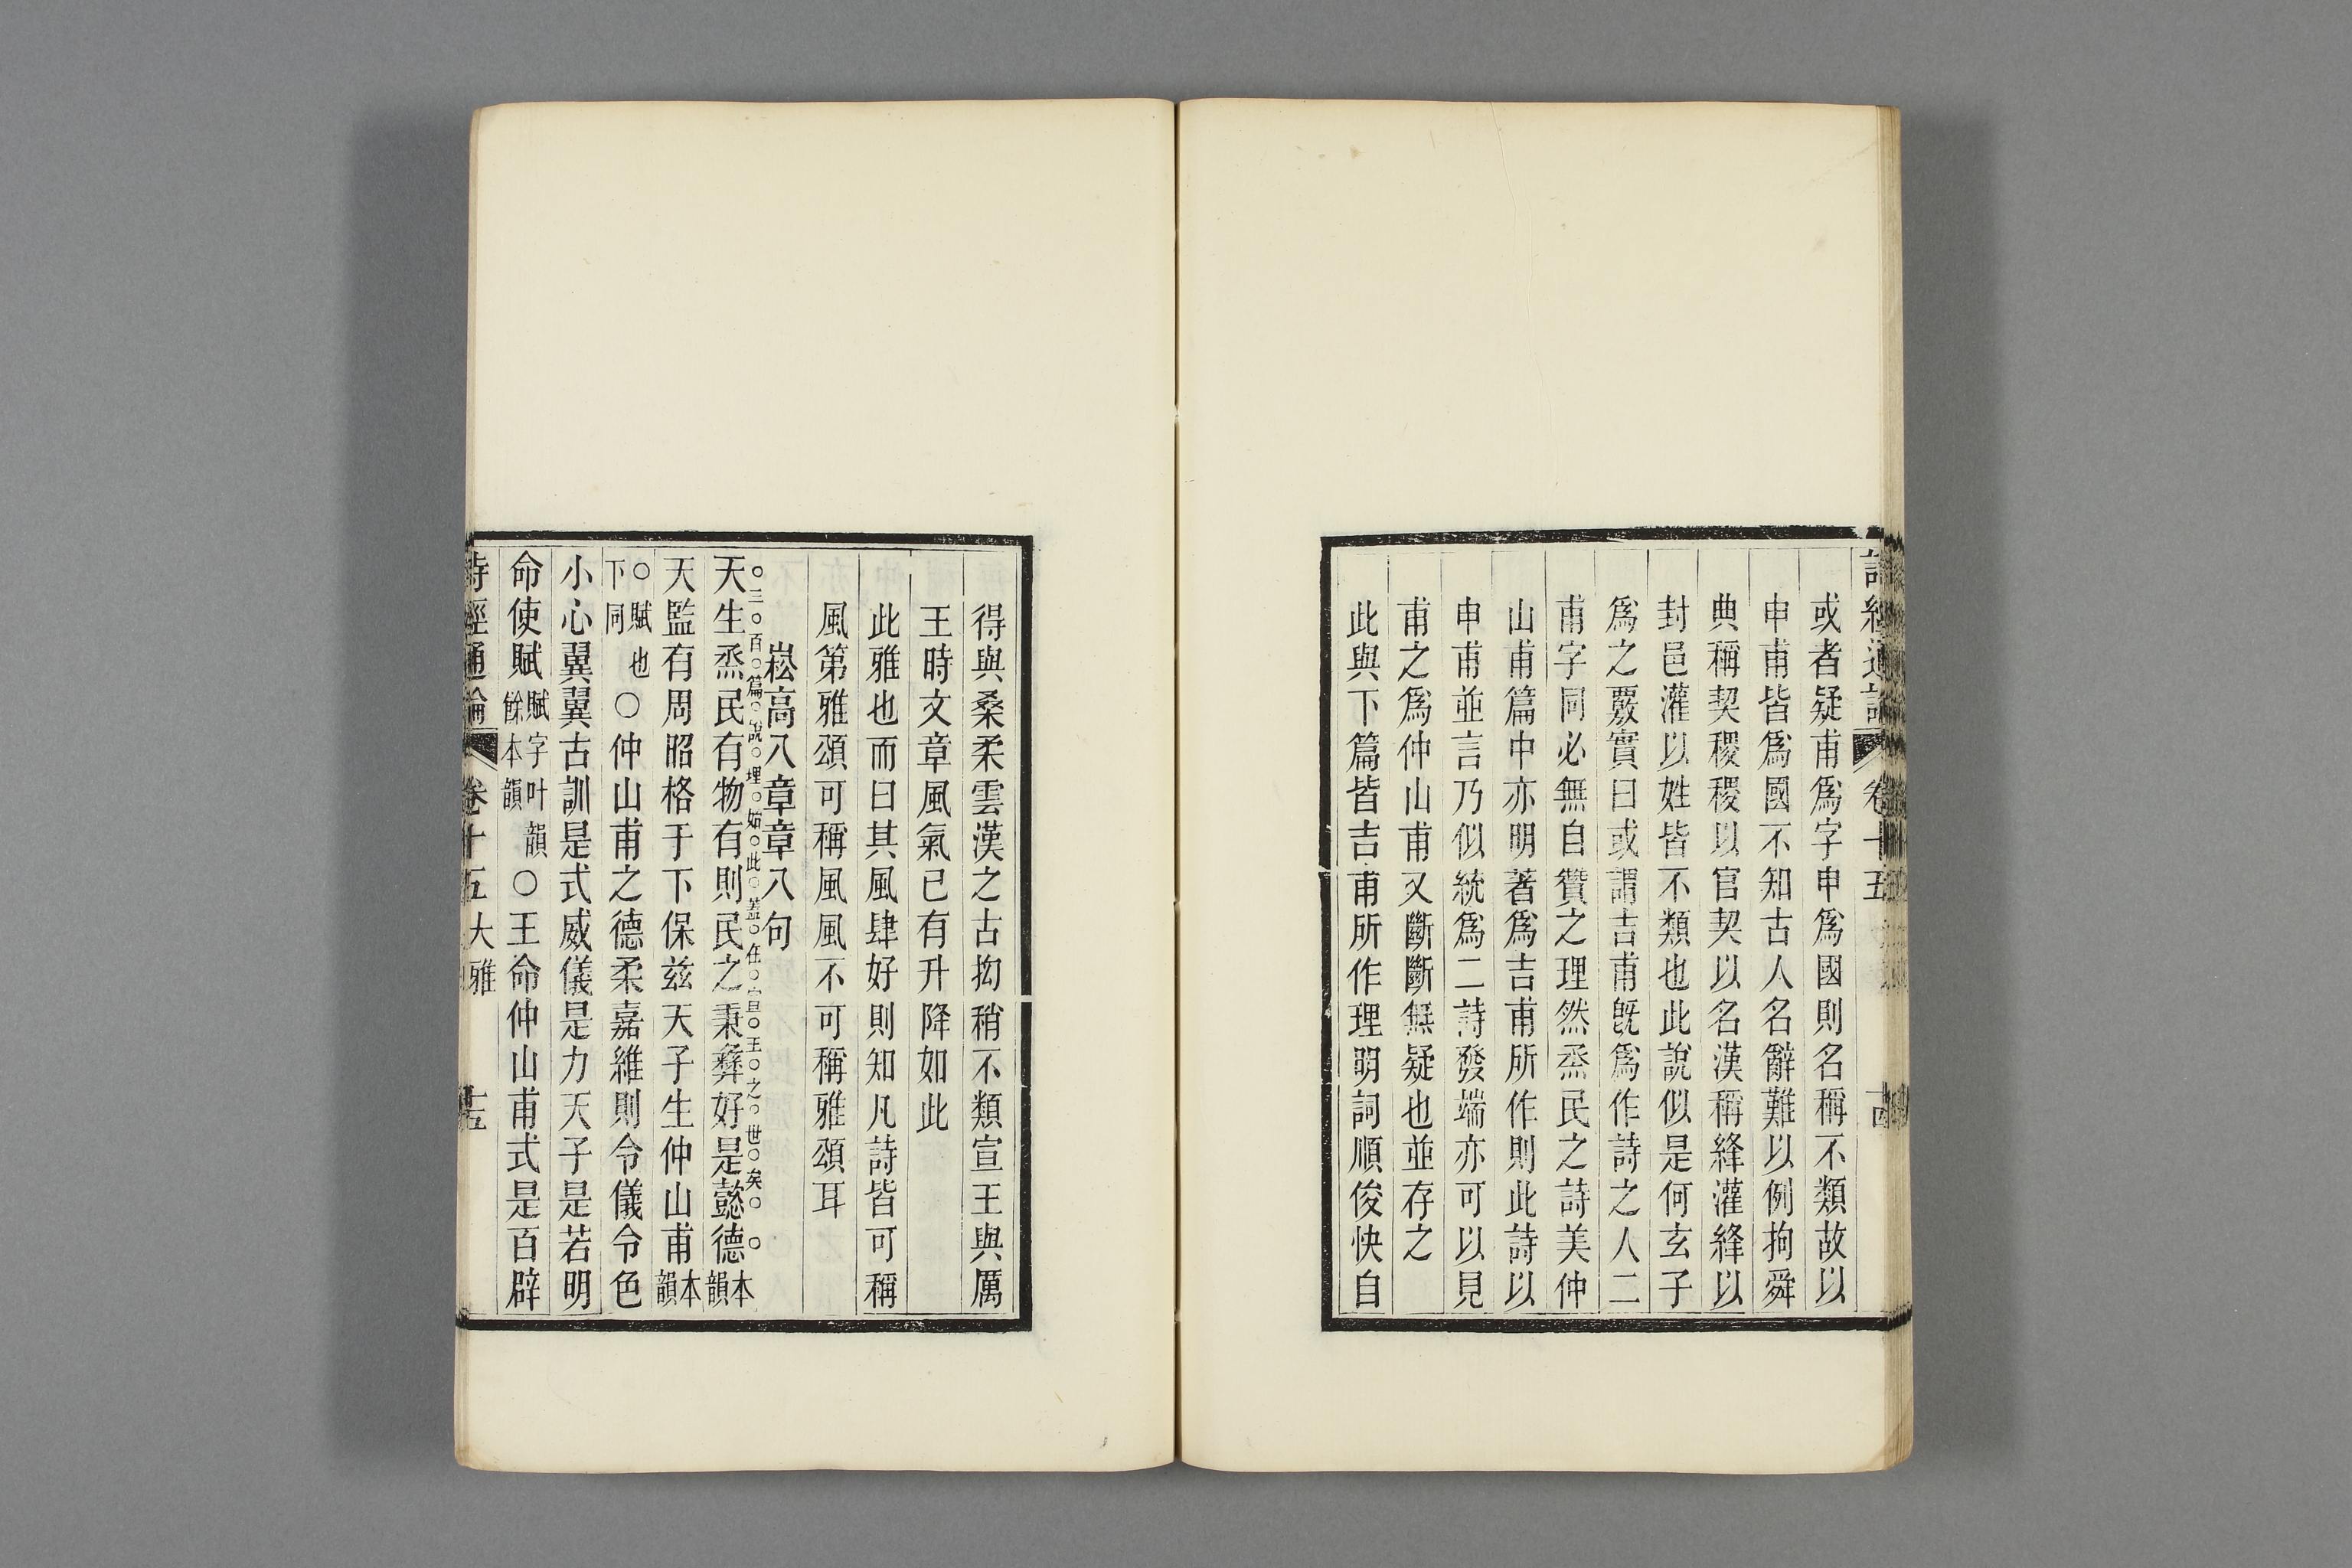 詩經通論 卷十五 十四
或者疑甫爲字申爲國則名稱不類故以
申甫皆爲國不知古人名辭難以例拘舜
典稱契稷稷以官契以名漢稱絳灌絳以
封邑灌以姓皆不類也此說似是何玄子
爲之覈實曰或謂吉甫旣爲作詩之人二
甫字同必無自贊之理然烝民之詩美仲
山甫篇中亦明著爲吉甫所作則此詩以
申甫並言乃似統爲二詩發端亦可以見
甫之爲仲山甫又斷斷無疑也並存之
此與下篇皆吉甫所作理明詞順俊快自
得與桑柔雲漢之古抝稍不類宣王與厲
王時文章風氣已有升降如此
此雅也而曰其風肆好則知凡詩皆可稱
風第雅頌可稱風風不可稱雅頌耳
崧高八章章八句
○三○百○篇○說○理○始○此○蓋○在○宣○王○之○世○矣○ ○
天生烝民有物有則民之秉彝好是懿德本韻
天監有周昭格于下保茲天子生仲山甫本韻
○賦也下同○仲山甫之德柔嘉維則令儀令色
小心翼翼古訓是式威儀是力天子是若明
命使賦賦字叶韻餘本韻○王命仲山甫式是百辟
詩經通論 卷十五 大雅 十五